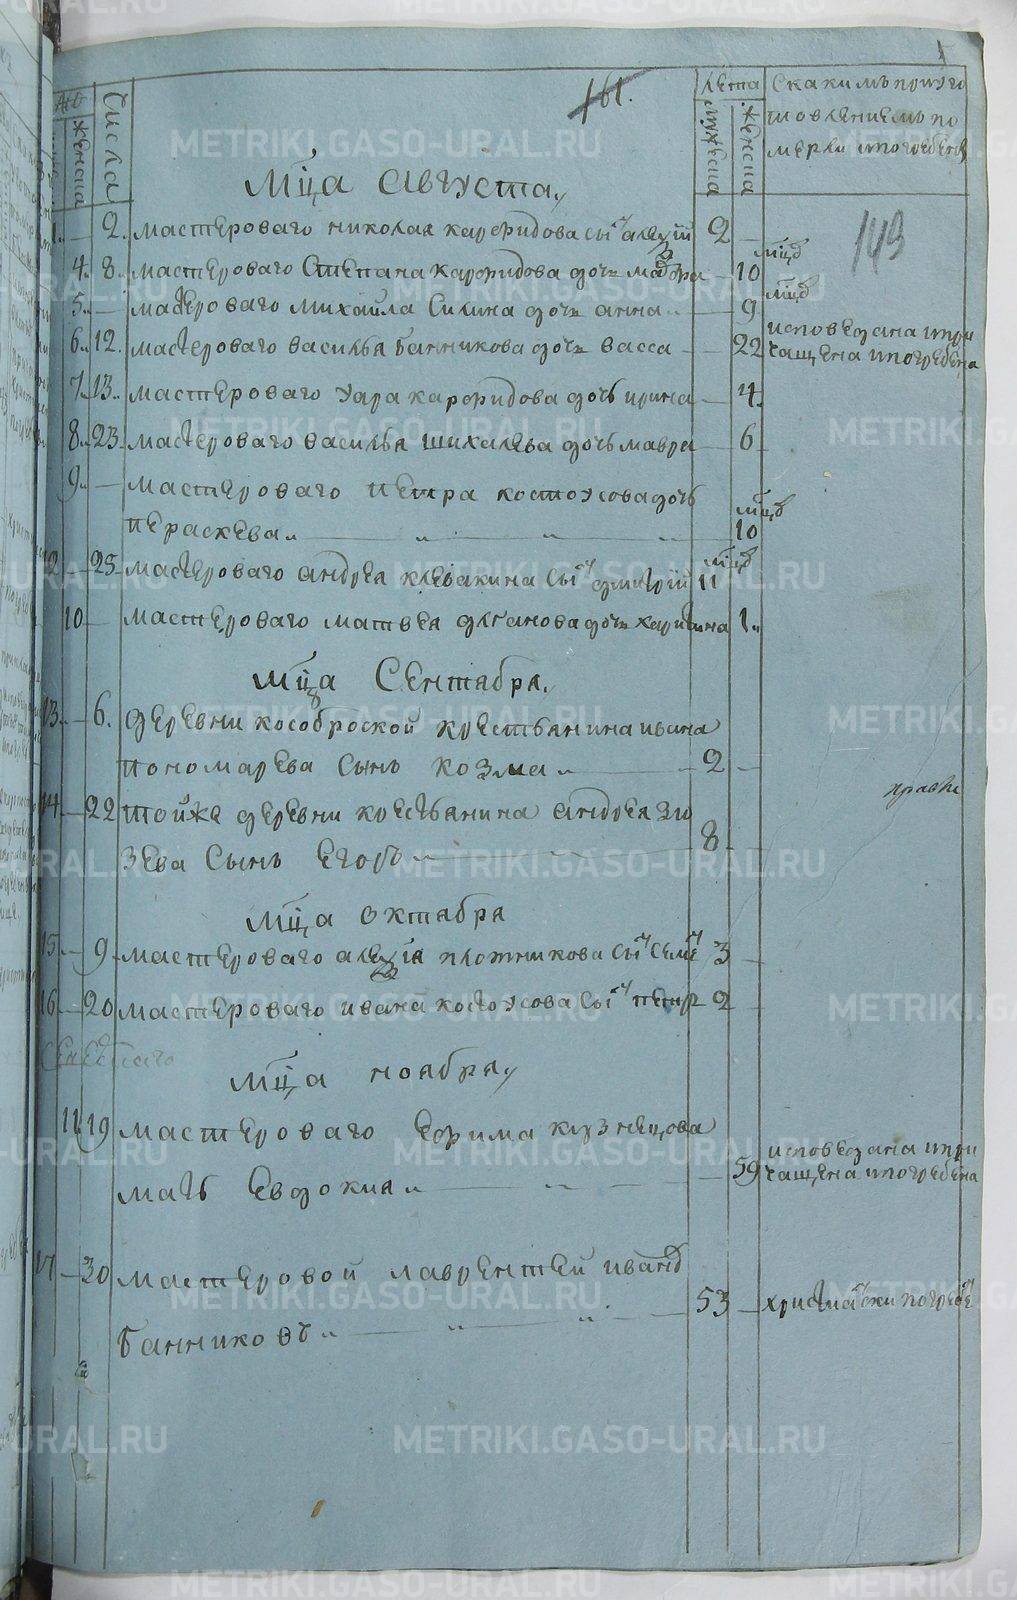 161.
143
лета
Скакимъ приуго
товлениемъ по
мерли ипогребены
женска
Числа
мужеска
женска
Мца Августа,
2. мастероваго николая карфидова сынъ алеѯiй 2 —
мцъ
4. 8. мастероваго Степана карфидова дочь мавра — 10
мцъ
5. — мастероваго михайла Силина дочь анна — 9
6. 12. мастероваго василья банникова дочь васса — 22 исповедана ипри
чащена ипогребена
7. 13. мастероваго уара карфидова дочь ирина — 4.
8. 23. мастероваго василья шихалева дочь мавра — 6
9. — мастероваго петра костоусова дочь
мцъ
пераскева — 10
мцъ
12 — 25 мастероваго андреа клевакина сынъ дмитрiй 11
10 — мастероваго матвея дочь харитина 1.
Мца Сентября,
13. — 6. деревни кособроской крестьянина ивана
пономарева сынъ козма — 2 —
14 — 22 тойже деревни крестьянина андреа зю
зева сынъ егоръ — 8 —
Мца октября
15 — 9 мастероваго алеѯiа плотникова сынъ семенъ 3 —
16 — 20 мастероваго ивана костоусова сынъ петр 2 —
Мца ноября,
11 19 мастероваго ефима кузнецова
мать евдокия — 59 исповедана ипри
чащена ипогребена
17 — 30 мастеровой лаврентей иванъ
банниковъ — 53 —
METRIKI.GASO-URAL.RU